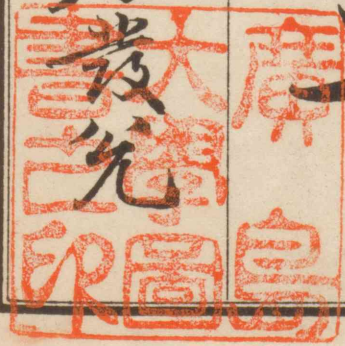 廣島
大學圖
書之印
發兌